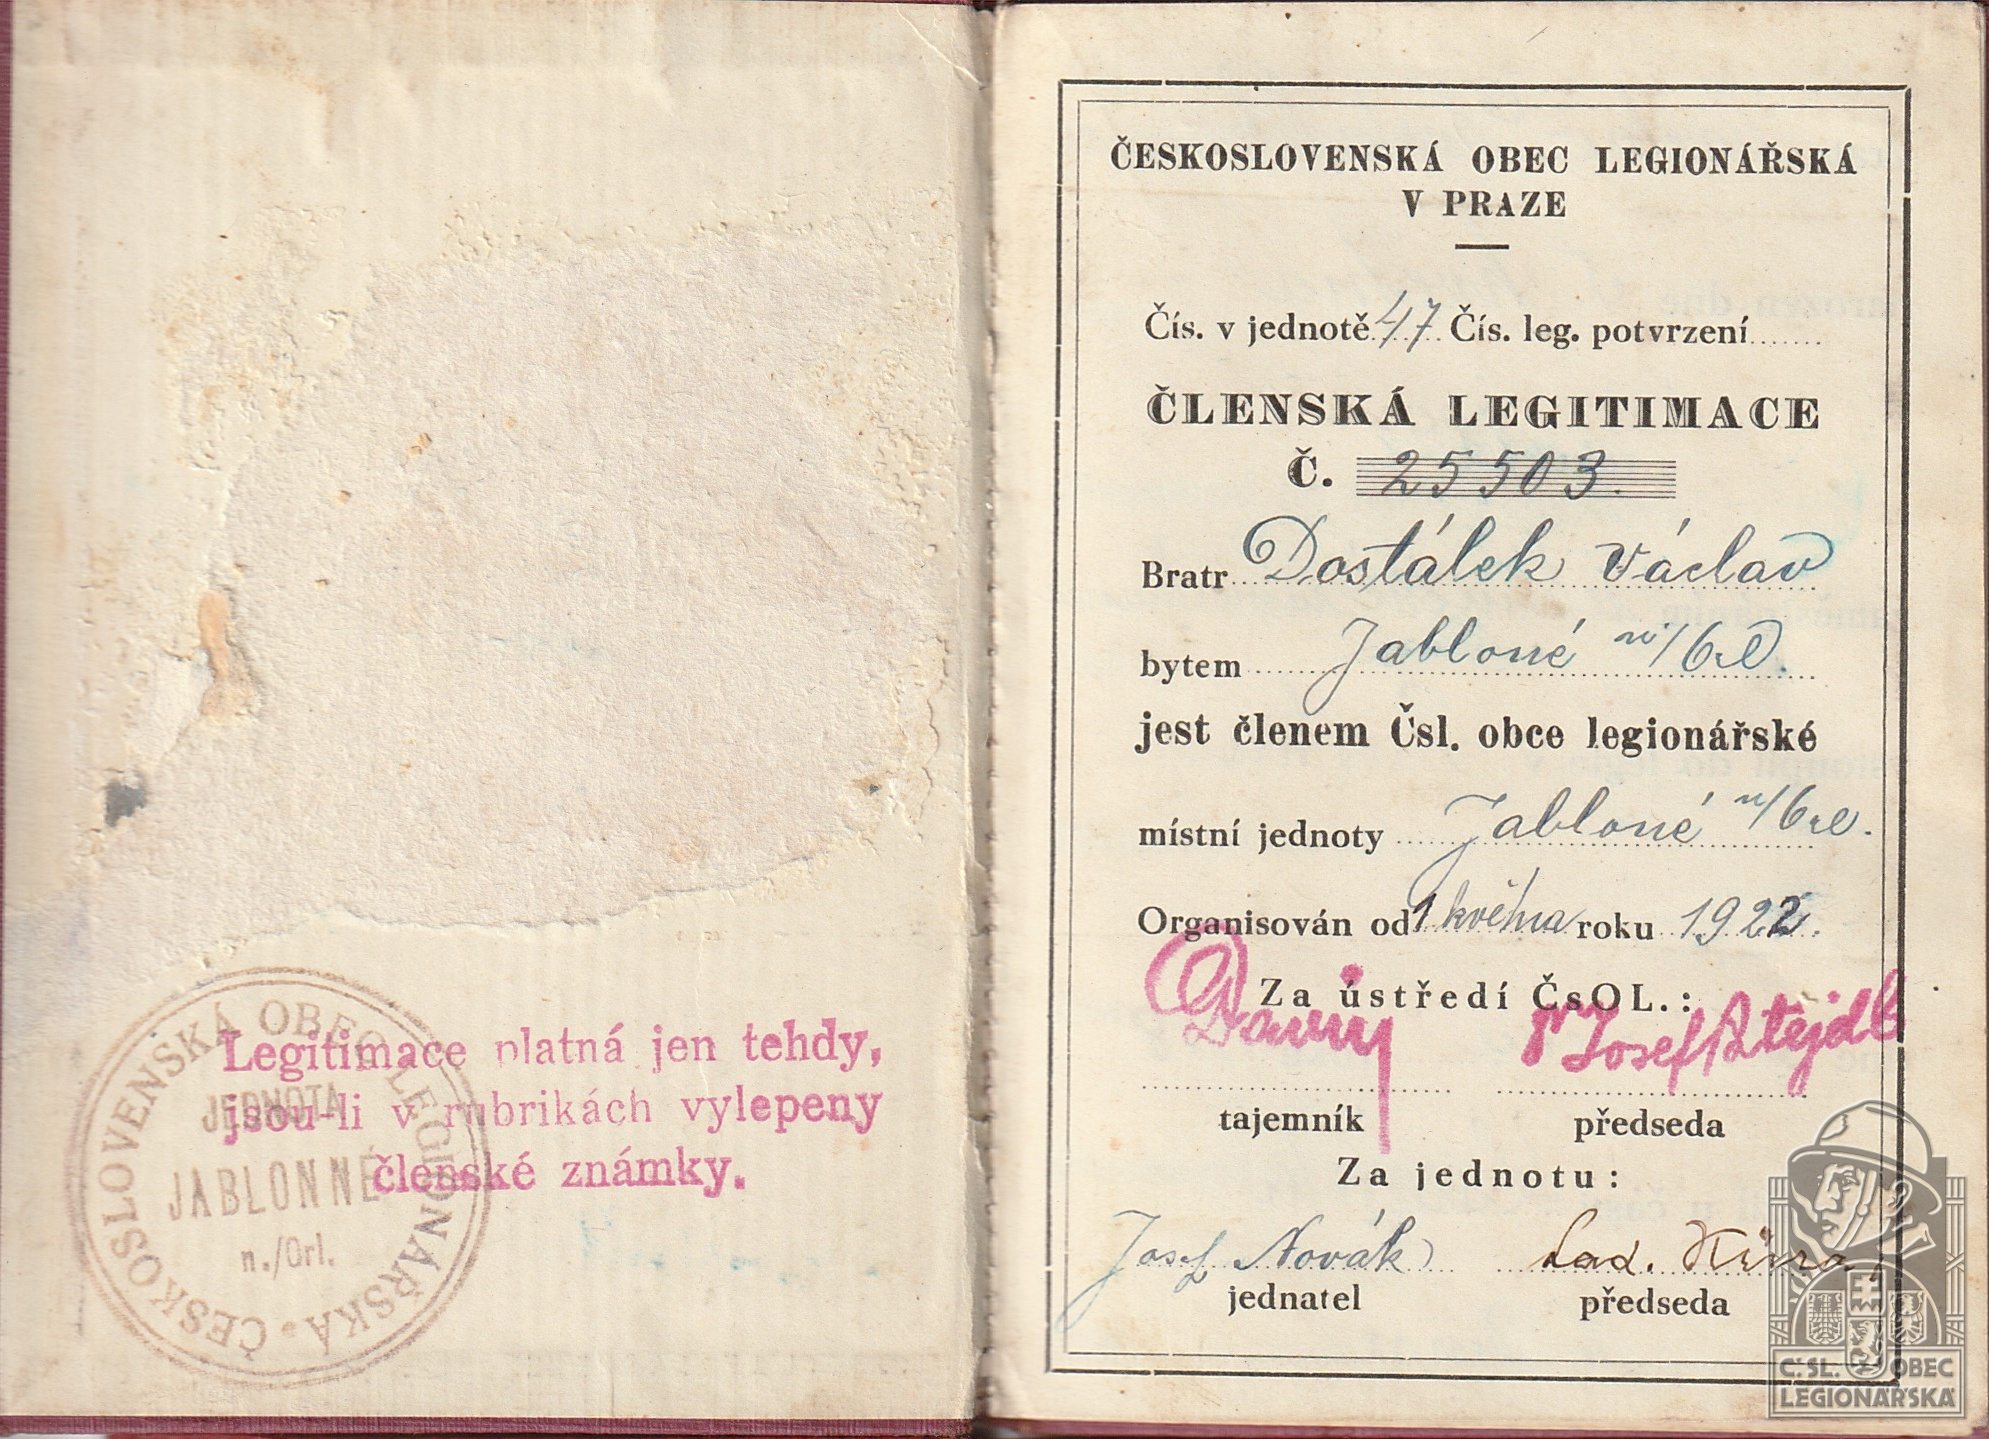 Legitimace platná jen tehdy,
jsou-li v rubrikách vylepeny
členské známky.
ČESKOSLOVENSKÁ OBEC LEGIONÁŘSKÁ
JEDNOTA
JABLONNÉ
n./Orl.
ČESKOSLOVENSKÁ OBEC LEGIONÁŘSKÁ
V PRAZE
Čís. v jednotě 47 Čís. leg. potvrzení
ČLENSKÁ LEGITIMACE
Č. 25503.
Bratr Dostálek Václav
bytem Jabloné n/Orl.
jest členem Čsl. obce legionářské
místní jednoty Jabloné n/Orl.
Organisován od 1 května roku 1922.
Za ústředí ČsOL.:
Josef
tajemník předseda
Za jednotu:
Josef Novák Lad.
jednatel předseda
Č.SL. OBEC
LEGIONÁŘSKÁ